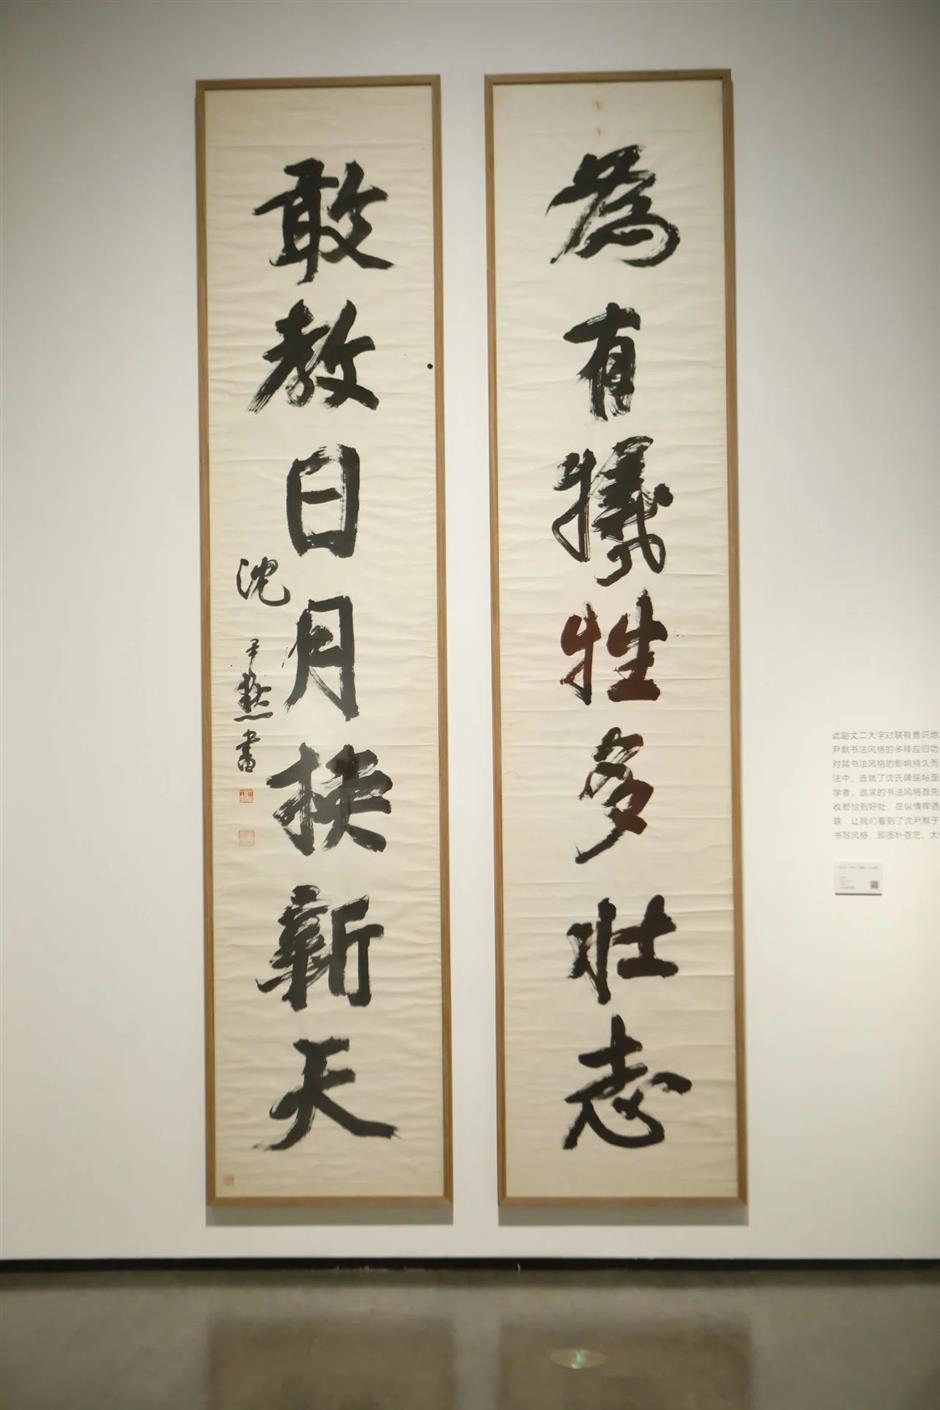 為有犧牲多壯志
敢教日月換新天
沈尹默書
此副丈二大字对联有意识地
尹默书法风格的多样应归功
对其书法风格的影响持久而
法中，造就了沈氏碑底帖面
学者，追求的书法风格首先
收都恰到好处，在纵情挥洒
联，让我们看到了沈尹默于
书写风格，即质朴苍茫、大